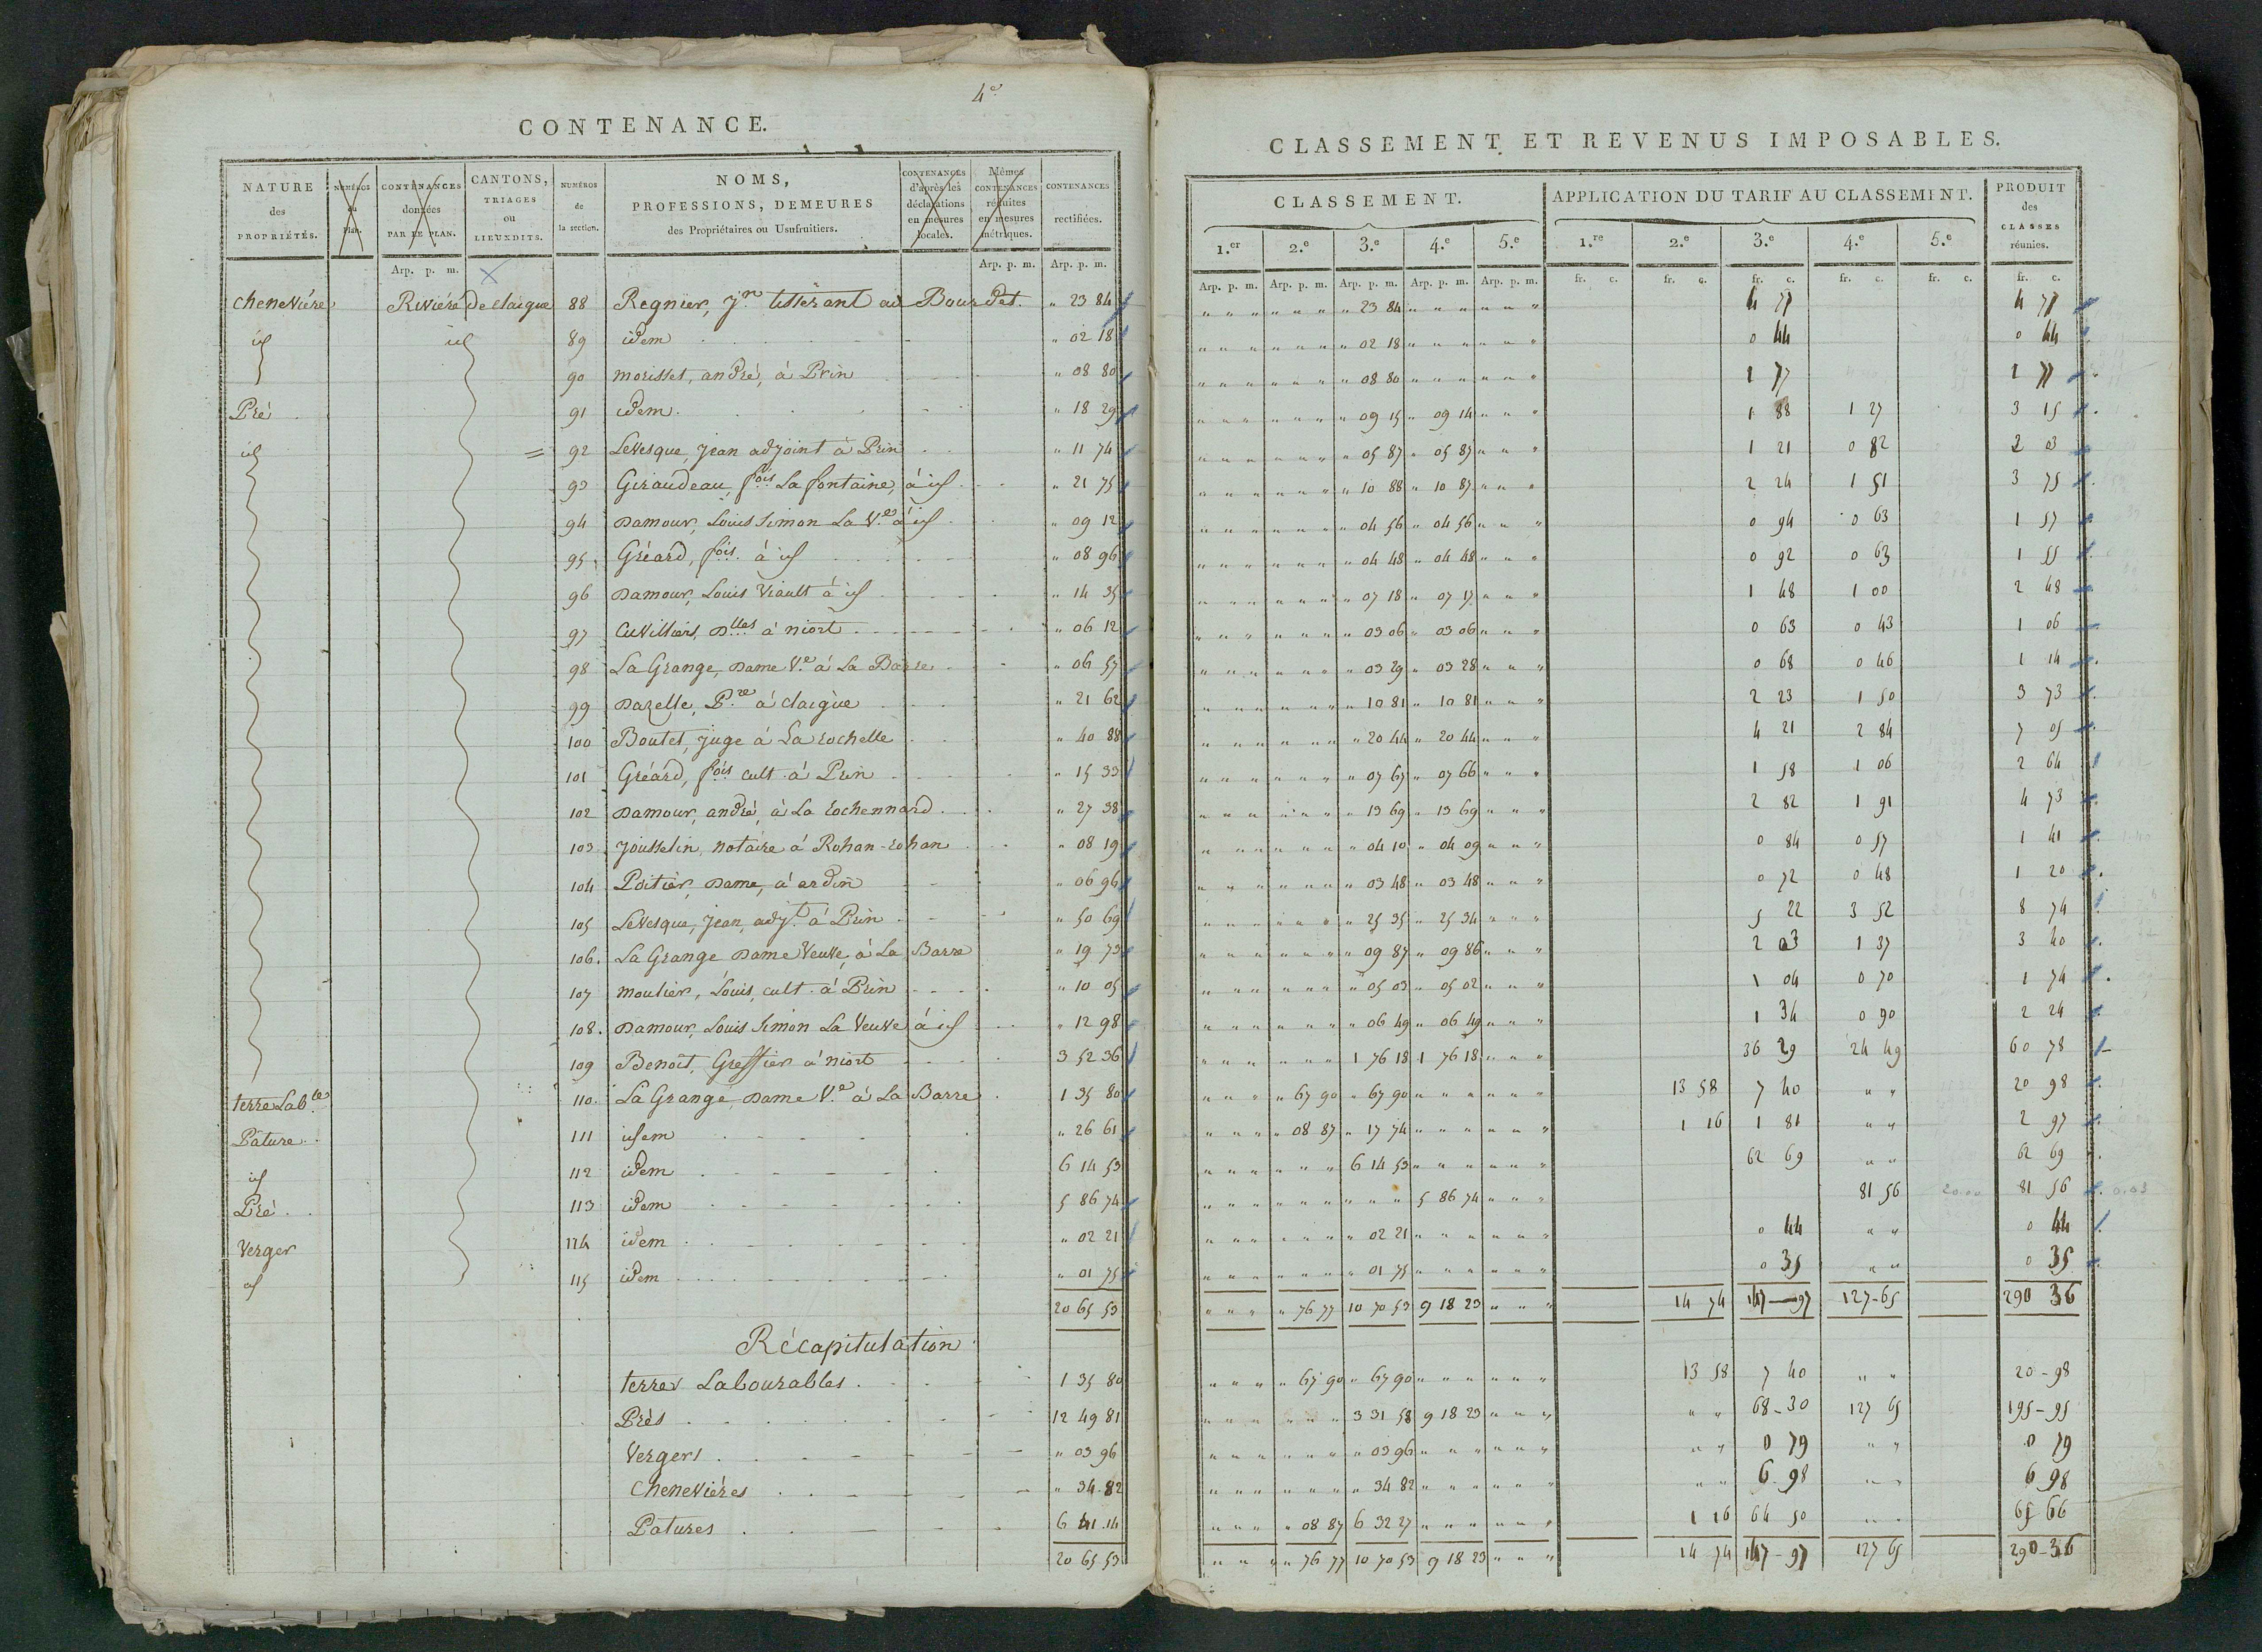 4e
CONTENANCE.
NATURE des PROPRIÉTÉS. NUMÉROS du Plan. CONTENANCES données PAR LE PLAN. CANTONS, TRIAGES ou LIEUXDITS. NUMÉROS de la section. NOMS, PROFESSIONS, DEMEURES des Propriétaires ou Usufruitiers. CONTENANCES d'après les déclarations en mesures locales. Mêmes CONTENANCES réduites en mesures métriques. CONTENANCES rectifiées.
Arp. p. m. Arp. p. m. Arp. p. m.
cheneviére Riviére de Claigue 88 Regnier, Jn tisserant au Bourdet. " 23 84
id id 89 idem " 02 18
90 morisset, andré, à Prin " 08 80
Pré 91 idem " 18 29
id = 92 Levesque, Jean adjoint à Prin " 11 74
93 Giraudeau, fois La fontaine, à id " 21 75
94 Damour, Louis Simon La Ve à id " 09 12
95 Gréard, fois à id " 08 96
96 Damour, Louis Viault à id " 14 35
97 Cuvilliers, Dlles à niort " 06 12
98 La Grange, Dame Ve à La Barre " 06 57
99 Dazelle, Pre à claigue " 21 62
100 Boutet, juge à La rochelle " 40 88
101 Gréard, fois cult. à Prin " 15 33
102 Damour, andré, à La rochennard " 27 38
103 Jousselin, notaire à Rohan-rohan " 08 19
104 Poitier, Dame, à ardin " 06 96
105 Levesque, Jean, adjt à Prin " 50 69
106. La Grange Dame Veuve, à La Barre " 19 73
107 moulier, Louis, cult. à Prin " 10 05
108. Damour, Louis Simon La Veuve à id " 12 98
109 Benoit, Greffier à niort 3 52 36
terre Lable 110. La Grange, Dame Ve à La Barre 1 35 80
Pature 111 idem " 26 61
id 112 idem 6 14 53
Pré 113 idem 5 86 74
Verger 114 idem " 02 21
id 115 idem " 01 75
20 65 53
Récapitulation
terres Labourables 1 35 80
Prés 12 49 81
Vergers " 03 96
Chenevières " 34 82
Patures 6 41 14
20 65 53
CLASSEMENT ET REVENUS IMPOSABLES.
CLASSEMENT. APPLICATION DU TARIF AU CLASSEMENT. PRODUIT des CLASSES réunies.
1.er 2.e 3.e 4.e 5.e 1.re 2.e 3.e 4.e 5.e
Arp. p. m. Arp. p. m. Arp. p. m. Arp. p. m. Arp. p. m. fr. c. fr. c. fr. c. fr. c. fr. c. fr. c.
" 23 84 4 77 4 77
" 02 18 0 44 0 44
" 08 80 1 77 1 77
" 09 15 " 09 14 1 88 1 27 3 15
" 05 87 " 05 87 1 21 0 82 2 03
" 10 88 " 10 87 2 24 1 51 3 75
" 04 56 " 04 56 0 94 0 63 1 57
" 04 48 " 04 48 0 92 0 63 1 55
" 07 18 " 07 17 1 48 1 00 2 48
" 03 06 " 03 06 0 63 0 43 1 06
" 03 29 " 03 28 0 68 0 46 1 14
" 10 81 " 10 81 2 23 1 50 3 73
" 20 44 " 20 44 4 21 2 84 7 05
" 07 67 " 07 66 1 58 1 06 2 64
" 13 69 " 13 69 2 82 1 91 4 73
" 04 10 " 04 09 0 84 0 57 1 41
" 03 48 " 03 48 0 72 0 48 1 20
" 25 35 " 25 34 5 22 3 52 8 74
" 09 87 " 09 86 2 03 1 37 3 40
" 05 03 " 05 02 1 04 0 70 1 74
" 06 49 " 06 49 1 34 0 90 2 24
1 76 18 1 76 18 36 29 24 49 60 78
" 67 90 " 67 90 13 58 7 40 " " 20 98
" 08 87 " 17 74 1 16 1 81 " " 2 97
6 14 53 62 69 " " 62 69
5 86 74 81 56 20.00 81 56 0.03
" 02 21 0 44 " " 0 44
" 01 75 0 35 " " 0 35
" 76 77 10 70 53 9 18 23 14 74 147-97 127-65 290 36
" 67 90 " 67 90 13 58 7 40 " " 20-98
3 31 58 9 18 23 " " 68-30 127 65 195-95
" 03 96 " " 0 79 " " 0 79
" 34 82 " " 6-98 " " 6 98
" 08 87 6 32 27 1 16 64 50 " " 65 66
" 76 77 10 70 53 9 18 23 14 74 147-97 127 65 290-36